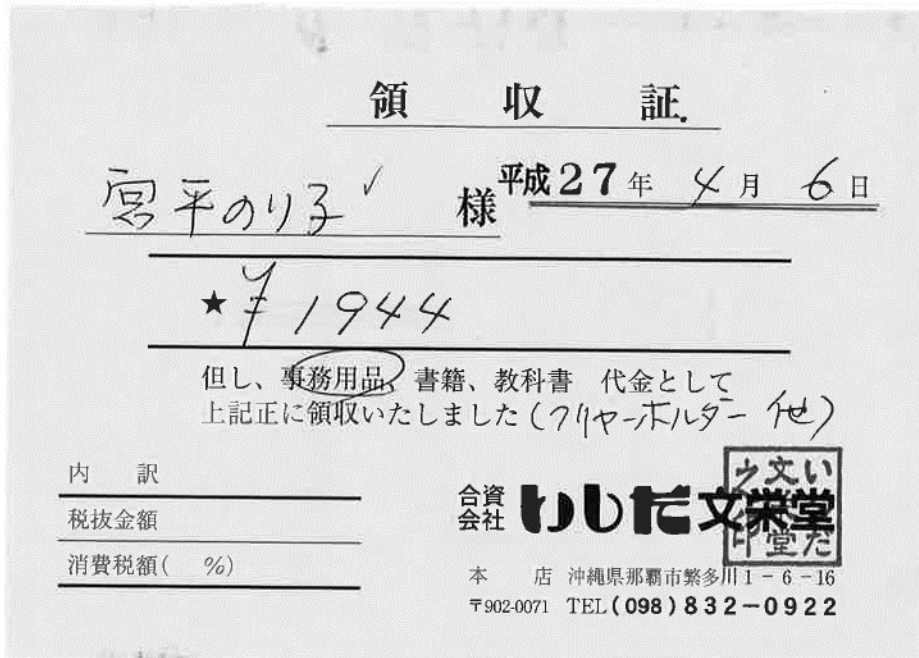 領収証.
宮平のり子 様
平成27年 4月 6日
★ ¥1944
但し、事務用品、書籍、教科書 代金として
上記正に領収いたしました(クリヤーホルダー 他)
内 訳
税抜金額
消費税額( %)
合資会社 いしだ文栄堂
本 店 沖縄県那覇市繁多川1-6-16
〒902-0071 TEL(098)832-0922